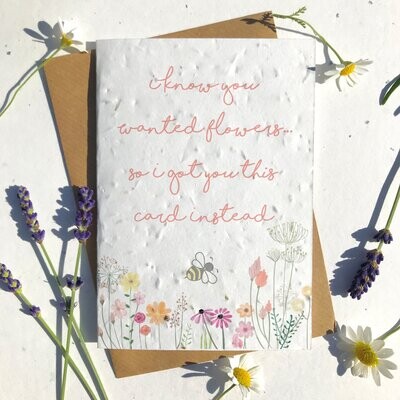 i know you
wanted flowers...
so i got you this
card instead